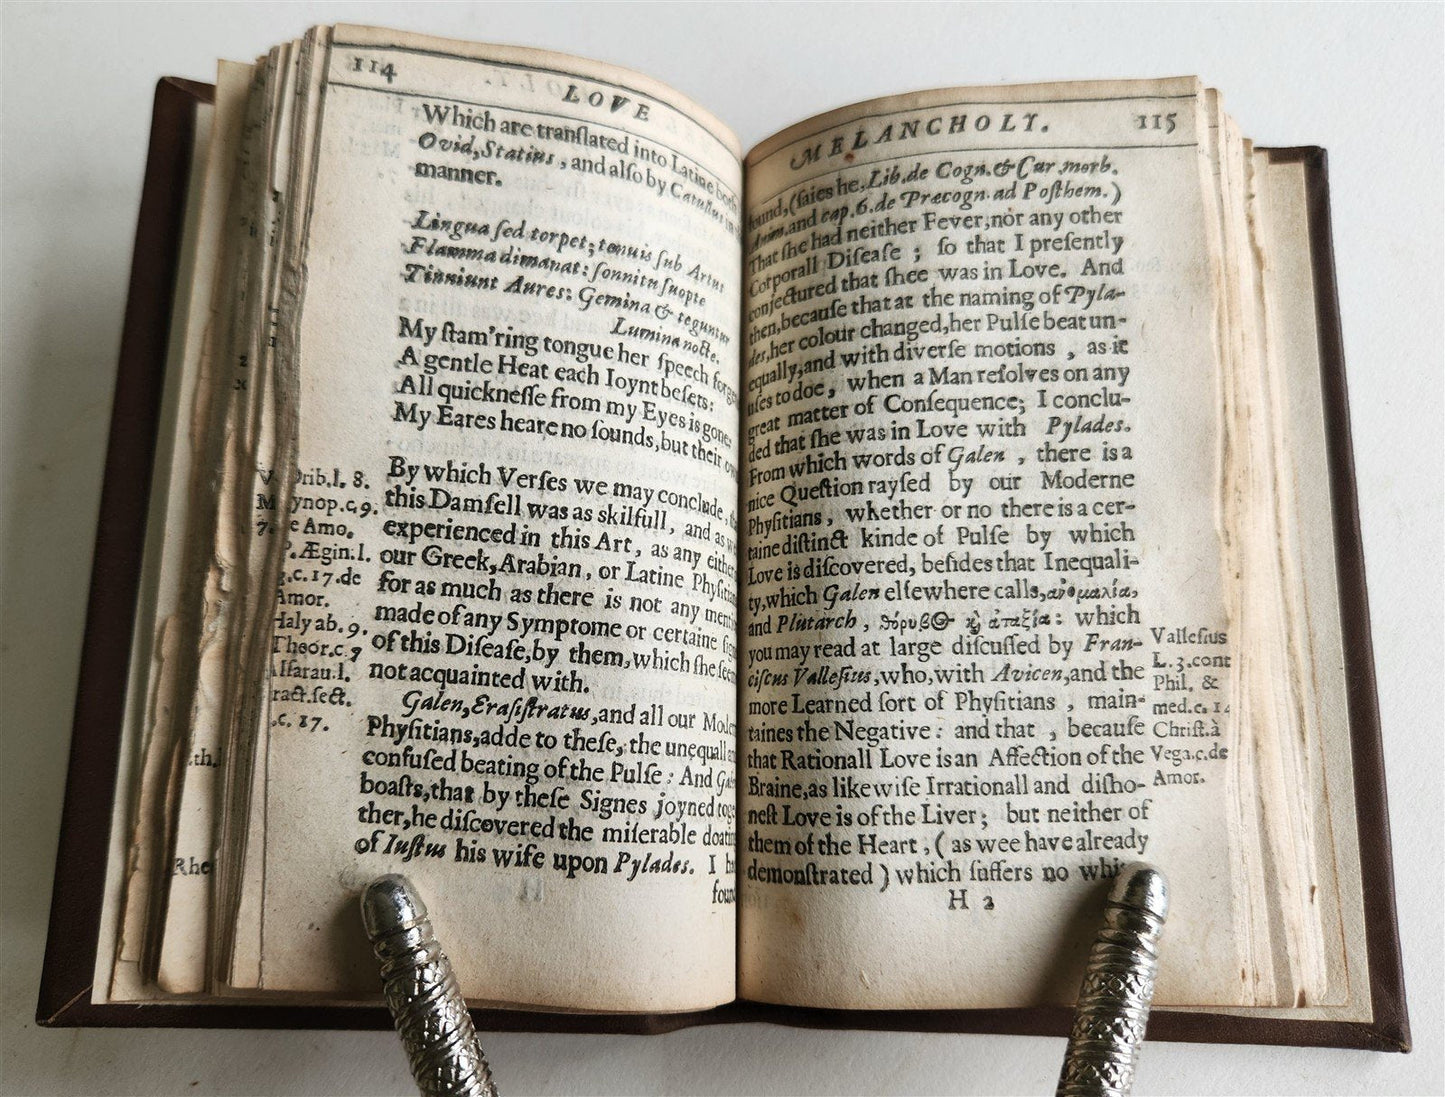 114
LOVE
Which are tranſlated into Latine both
Ovid, Statius, and alſo by Catullus in
manner.
Lingua ſed torpet; tenuis ſub Artus
Flamma dimanat: ſonnitu ſuopte
Tinniunt Aures: Gemina & teguntur
Lumina nocte.
My ſtam'ring tongue her ſpeech
A gentle Heat each Ioynt beſets:
All quickneſſe from my Eyes is gone;
My Eares heare no ſounds, but their
By which Verſes we may conclude,
this Damſell was as skilfull, and as
experienced in this Art, as any either
our Greek, Arabian, or Latine
for as much as there is not any
made of any Symptome or certaine
of this Diſeaſe, by them, which ſhe
not acquainted with.
Galen, Eraſiſtratus, and all our
Phyſitians, adde to theſe, the unequall
confuſed beating of the Pulſe: And
boaſts, that by theſe Signes joyned
ther, he diſcovered the miſerable
of Iuſtus his wife upon Pylades. I
found
Orib. l. 8.
ynop. c. 9.
e Amo.
P. Ægin. l.
c. 17. de
Amor.
Haly ab. 9.
Theor. c. 7
Alſarau. l.
ract. ſect.
c. 17.
MELANCHOLY.
115
found, (ſaies he, Lib. de Cogn. & Cur. morb.
Anim. and cap. 6. de Præcogn. ad Poſthem.)
That ſhe had neither Fever, nor any other
Corporall Diſeaſe; ſo that I preſently
conjectured that ſhee was in Love. And
then, becauſe that at the naming of Pyla-
des, her colour changed, her Pulſe beat un-
equally, and with diverſe motions, as it
uſes to doe, when a Man reſolves on any
great matter of Conſequence; I conclu-
ded that ſhe was in Love with Pylades.
From which words of Galen, there is a
nice Queſtion rayſed by our Moderne
Phyſitians, whether or no there is a cer-
taine diſtinct kinde of Pulſe by which
Love is diſcovered, beſides that Inequali-
ty, which Galen elſewhere calls, ἀνωμαλία,
and Plutarch, θόρυβος καὶ ἀταξία: which
you may read at large diſcuſſed by Fran-
ciſcus Valleſius, who, with Avicen, and the
more Learned ſort of Phyſitians, main-
taines the Negative: and that, becauſe
that Rationall Love is an Affection of the
Braine, as likewiſe Irrationall and diſho-
neſt Love is of the Liver; but neither of
them of the Heart, (as wee have already
demonſtrated) which ſuffers no
H 2
Valleſius
L. 3. cont
Phil. &
med. c. 14
Chriſt. à
Vega. c. de
Amor.